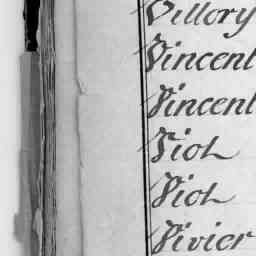 Villory
Vincent
Vincent
Viot
Viot
Vivier